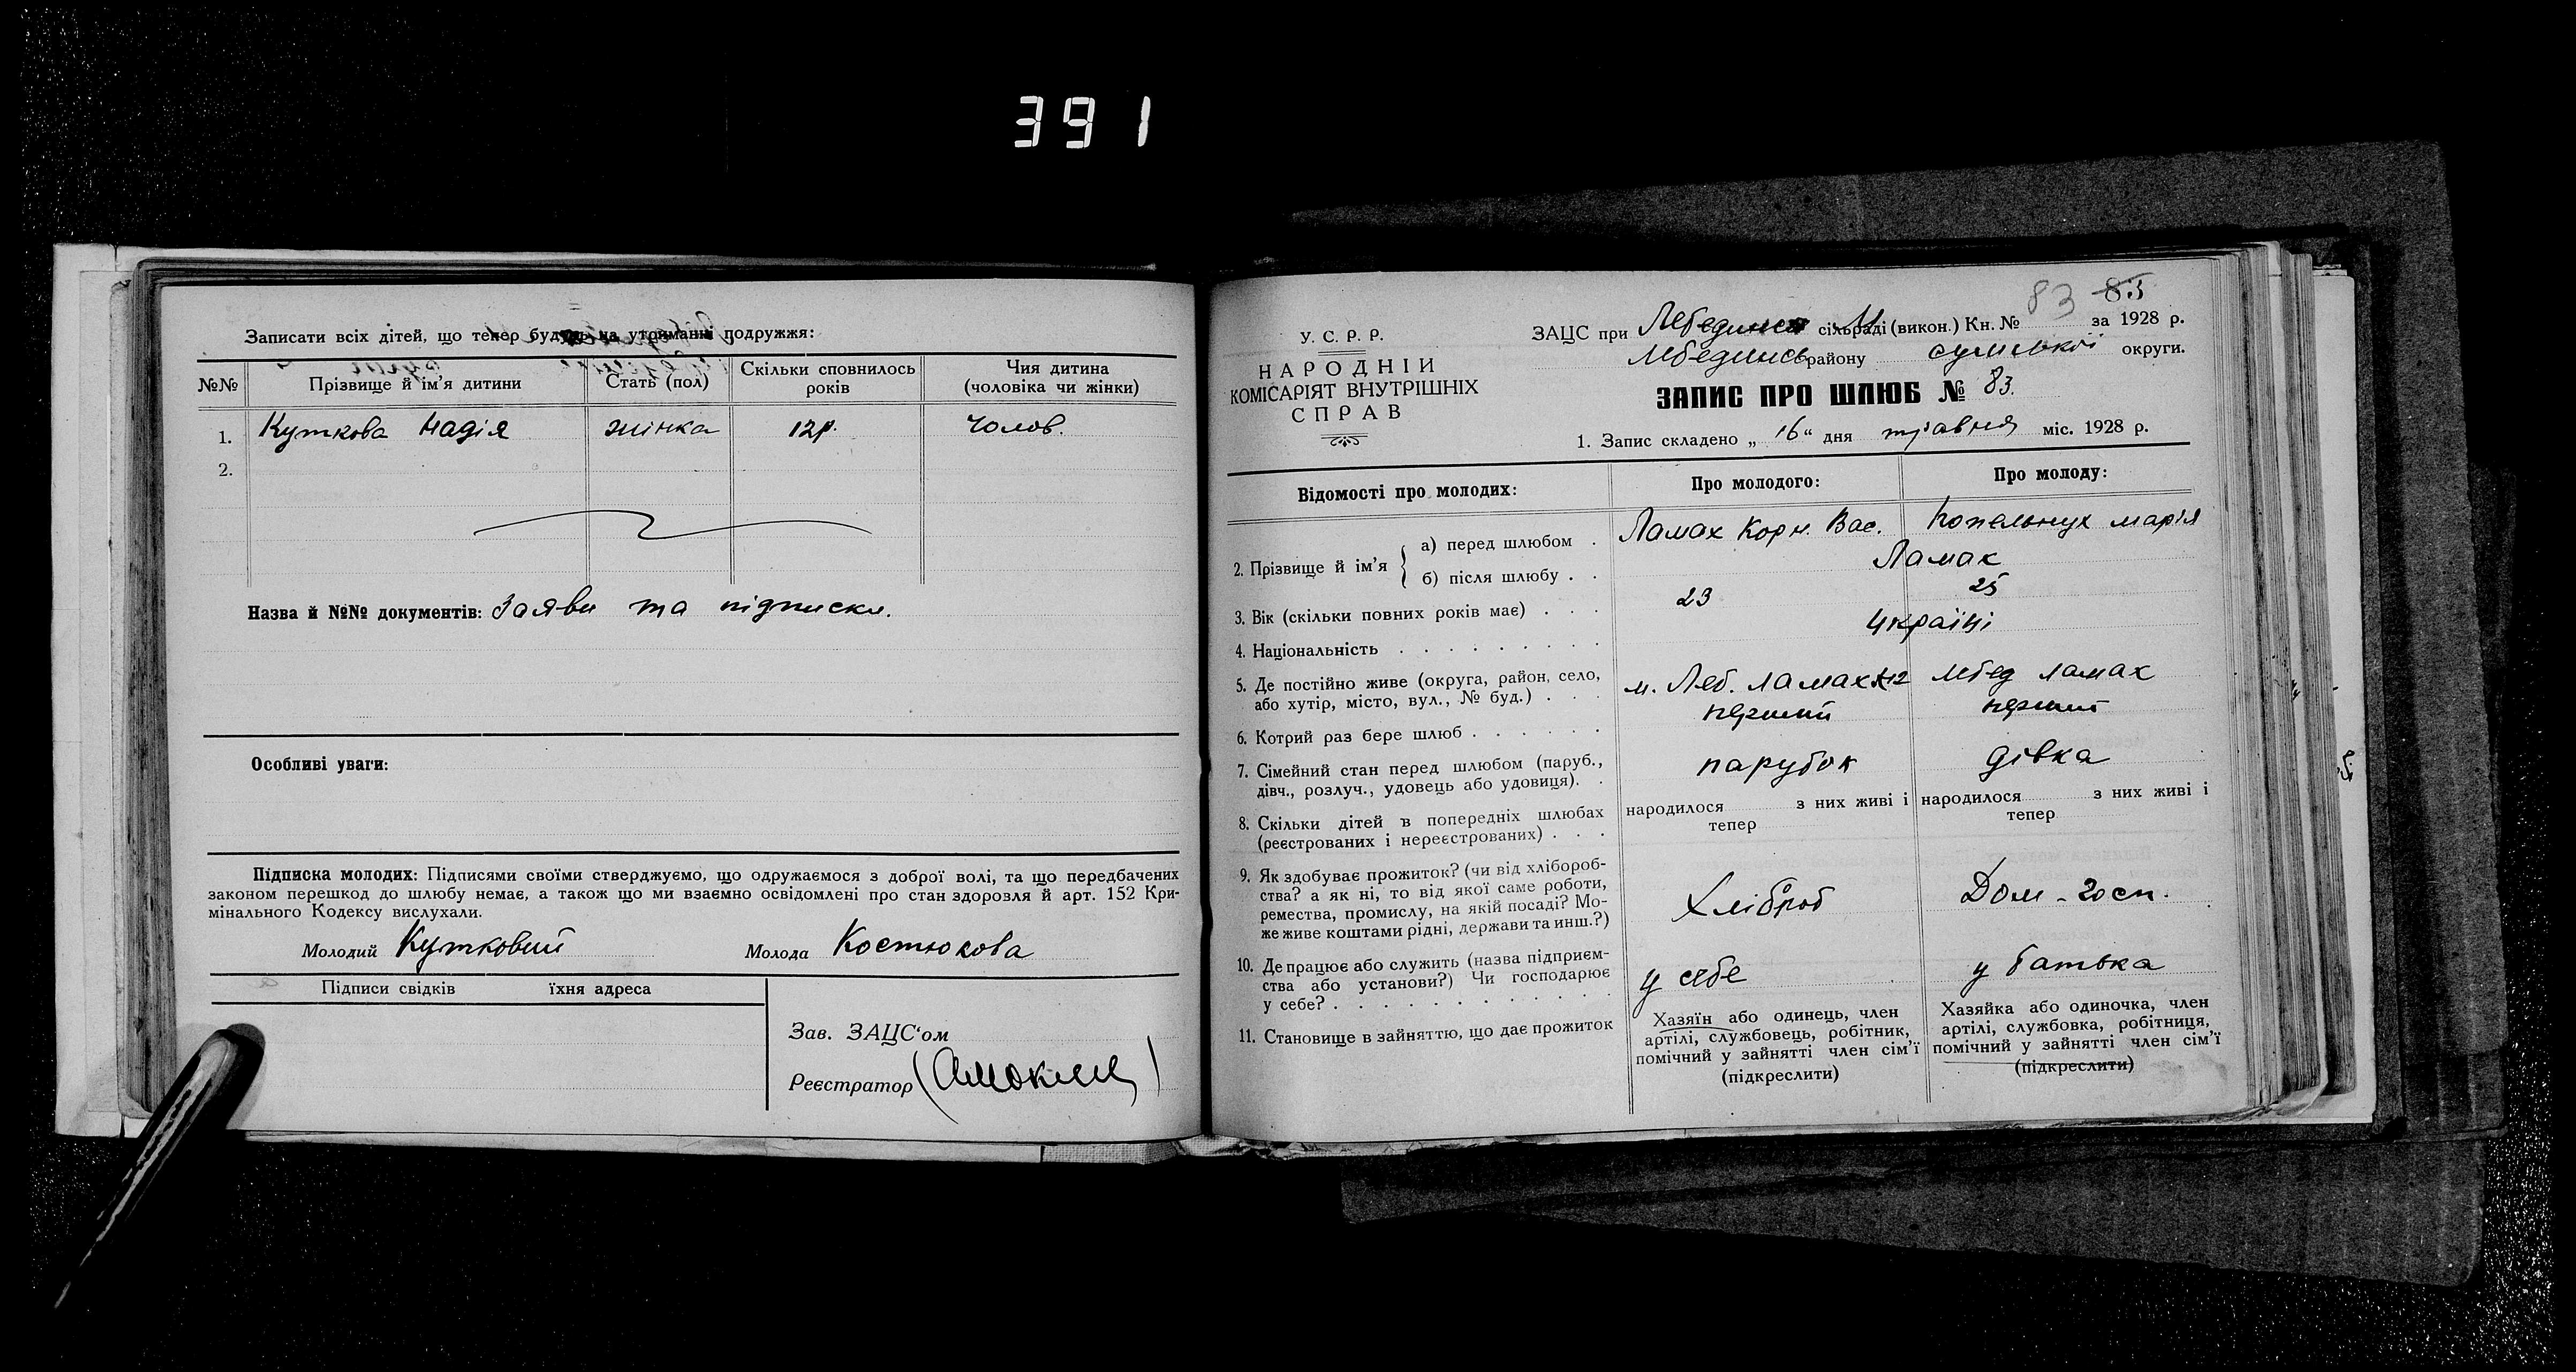 391
Записати всіх дітей, що тепер будуть на утриманні подружжя:
№№ Прізвище й ім'я дитини Стать (пол) Скільки сповнилось років Чия дитина (чоловіка чи жінки)
1. Куткова Надія жінка 12р. Чолов.
2.
Назва й №№ документів: Заяви та підписки.
Особливі уваги:
Підписка молодих: Підписями своїми стверджуємо, що одружаємося з доброї волі, та що передбачених
законом перешкод до шлюбу немає, а також що ми взаємно освідомлені про стан здоровля й арт. 152 Кри-
мінального Кодексу вислухали.
Молодий Кутковий Молода Костюкова
Підписи свідків їхня адреса
Зав. ЗАЦС'ом
Реєстратор
83 83
У. С. Р. Р.
НАРОДНІЙ
КОМІСАРІЯТ ВНУТРІШНІХ
СПРАВ
ЗАЦС при сільраді (викон.) Кн. № за 1928 р.
Лебединськ району Сумської округи.
ЗАПИС ПРО ШЛЮБ № 83.
1. Запис складено „ 16 " дня травня міс. 1928 р.
Відомості про молодих: Про молодого: Про молоду:
2. Прізвище й ім'я
а) перед шлюбом . Ламах Корн. Вас. Марія
б) після шлюбу . . Ламах
3. Вік (скільки повних років має) . . . 23 25
4. Національність . . . . . . . . . Україні
5. Де постійно живе (округа, район, село,
або хутір, місто, вул., № буд.) . . . м. Леб. Ламах 12 Лебед Ламах
6. Котрий раз бере шлюб . . . . . . перший перший
7. Сімейний стан перед шлюбом (паруб.,
дівч., розлуч., удовець або удовиця). . парубок дівка
8. Скільки дітей в попередніх шлюбах
(реєстрованих і нереєстрованих) . . .
народилося з них живі і тепер
народилося з них живі і тепер
9. Як здобуває прожиток? (чи від хлібороб-
ства? а як ні, то від якої саме роботи,
ремества, промислу, на якій посаді? Мо-
же живе коштами рідні, держави та инш.?)
Хлібороб Дом-госп.
10. Де працює або служить (назва підприєм-
ства або установи?) Чи господарює
у себе? . . . . . . . . . . . . у себе у батька
11. Становище в зайняттю, що дає прожиток
Хазяїн або одинець, член
артілі, службовець, робітник,
помічний у зайнятті член сім'ї
(підкреслити)
Хазяйка або одиночка, член
артілі, службовка, робітниця,
помічний у зайнятті член сім'ї
(підкреслити)